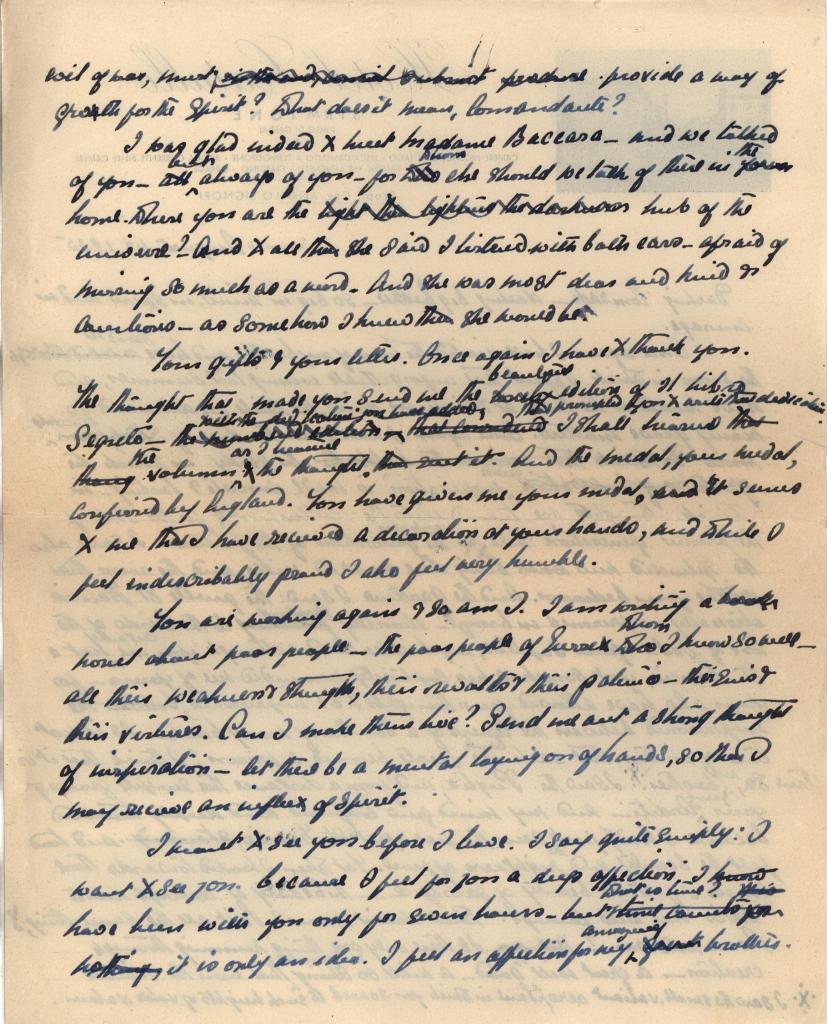 evil of war, must provide a way of
growth for the spirit? What does it mean, Comandante?
I was glad indeed to meet Madame Baccara — and we talked
of you — but always of you — for whom else should we talk of there in the
home where you are the hub of the
universe? And to all she said I listened with both ears — afraid of
missing so much as a word. And she was most dear and kind &
courteous — as somehow I knew she would be.
Your gifts & your letter. Once again I have to thank you.
beautiful
The thought that made you send me the edition of Il libro
Segreto — the dedication I shall treasure
the volume as I treasure the thought. And the medal, your medal,
conferred by England. You have given me your medal, and it seems
to me that I have received a decoration at your hands, and while I
feel indescribably proud I also feel very humble.
You are working again & so am I. I am writing a
novel about poor people — the poor people of Sussex whom I know so well —
all their weakness & strength, their revolts & their patience — their sins &
their virtues. Can I make them live? Send me out a strong thought
of inspiration — let there be a mental laying on of hands, so that I
may receive an influx of spirit.
I want to see you before I leave. I say quite simply: I
want to see you. because I feel for you a deep affection. I
have been with you only for seven hours — but what is time?
it is only an idea. I felt an affection for my brother.